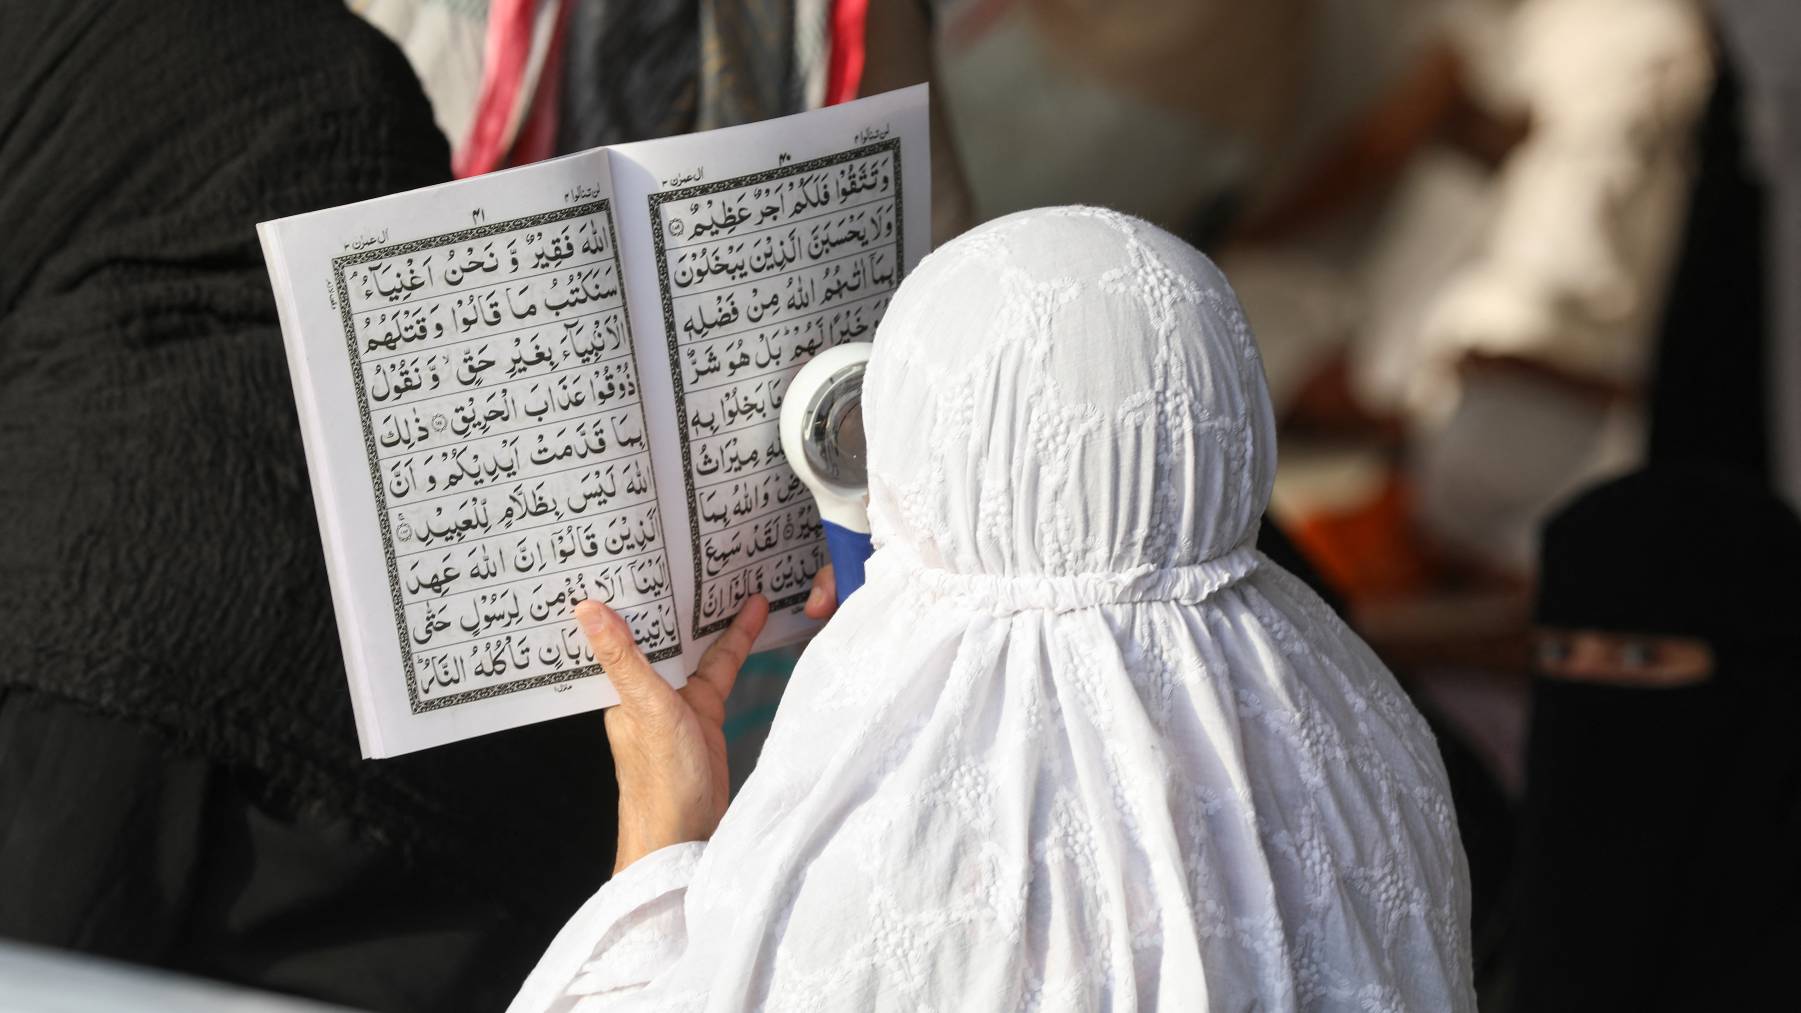 لن تنالوا ٤
٤٠
اٰل عمرٰن ٣
وَتَتَّقُوْا فَلَكُمْ اَجْرٌ عَظِيْمٌ
وَلَا يَحْسَبَنَّ الَّذِيْنَ يَبْخَلُوْنَ
بِمَاۤ اٰتٰىهُمُ اللّٰهُ مِنْ فَضْلِهٖ
خَيْرًا لَّهُمْ ؕ بَلْ هُوَ شَرٌّ
بَخِلُوْا بِهٖ
مِيْرَاثُ
وَاللّٰهُ بِمَا
لَقَدْ سَمِعَ
الَّذِيْنَ قَالُوْۤا اِنَّ
لن تنالوا ٤
٤١
اٰل عمرٰن ٣
اللّٰهَ فَقِيْرٌ وَّ نَحْنُ اَغْنِيَآءُ ۘ
سَنَكْتُبُ مَا قَالُوْا وَقَتْلَهُمُ
الْاَنْۢبِيَآءَ بِغَيْرِ حَقٍّ ۙ وَّ نَقُوْلُ
ذُوْقُوْا عَذَابَ الْحَرِيْقِ ذٰلِكَ
بِمَا قَدَّمَتْ اَيْدِيْكُمْ وَ اَنَّ
اللّٰهَ لَيْسَ بِظَلَّامٍ لِّلْعَبِيْدِ
اَلَّذِيْنَ قَالُوْۤا اِنَّ اللّٰهَ عَهِدَ
اِلَيْنَاۤ اَلَّا نُؤْمِنَ لِرَسُوْلٍ حَتّٰى
تَاْكُلُهُ النَّارُ ؕ
منزل ١